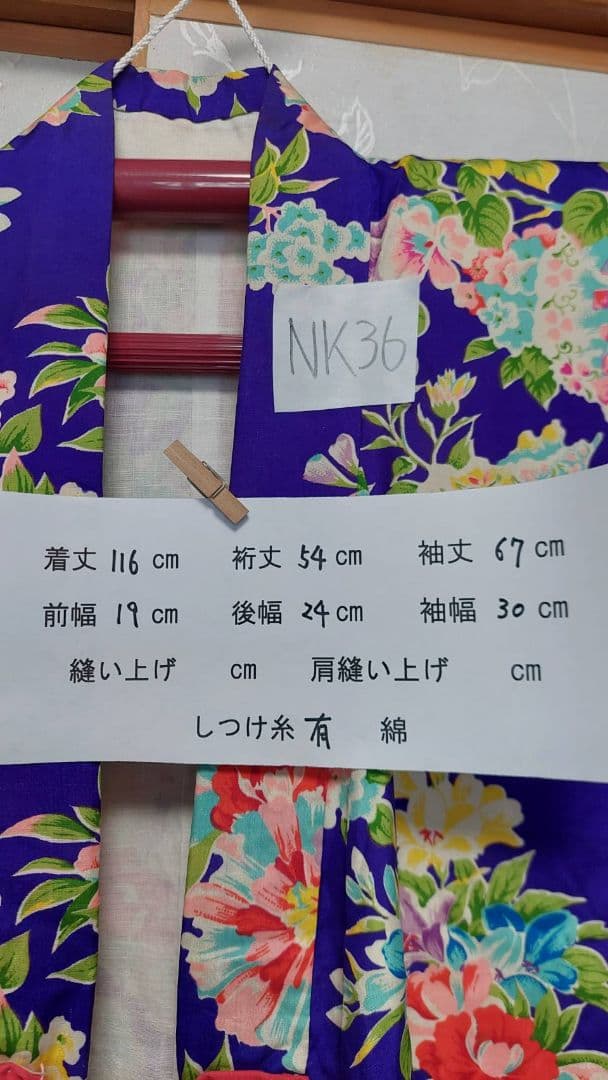 NK36
着丈 116 cm 裄丈 54 cm 袖丈 67 cm
前幅 19 cm 後幅 24 cm 袖幅 30 cm
縫い上げ cm 肩縫い上げ cm
しつけ糸 有 綿